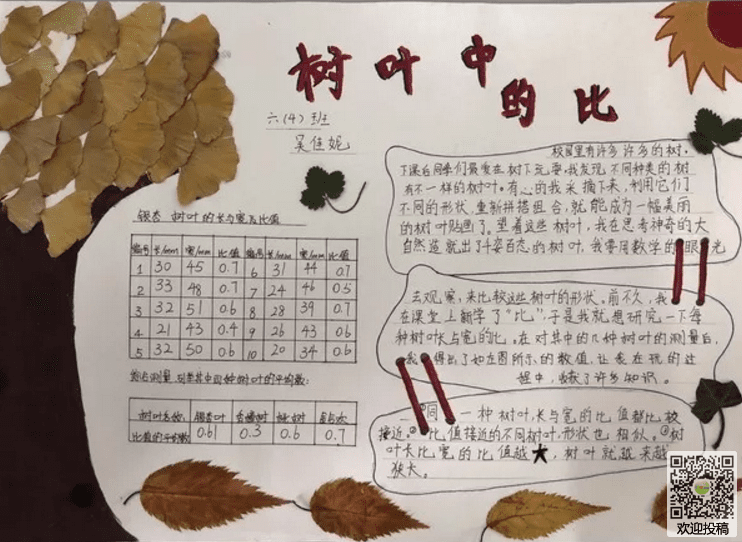 树叶中
的比
六(4)班
吴佳妮
银杏树叶的长与宽及比值
编号 长/mm 宽/mm 比值 编号 长/mm 宽/mm 比值
1 30 45 0.7 6 31 44 0.7
2 33 48 0.7 7 24 46 0.5
3 32 51 0.6 8 28 39 0.7
4 21 43 0.4 9 26 43 0.6
5 32 50 0.6 10 20 34 0.6
树叶的平均数:
树叶名称 银杏叶 0.61 0.3 0.6 0.7
比值的平均数
校园里有许多许多的树。
下课后同学们最爱在树下玩耍。我发现不同种类的树
有不一样的树叶。有心的我采摘下来,利用它们
不同的形状,重新拼搭组合,就能成为一幅美丽
的树叶贴画了。望着这些树叶,我在思考神奇的大
自然造就出了千姿百态的树叶,我要用数学的眼光
去观察,来比较这些树叶的形状。前不久,我
在课堂上新学了“比”,于是我就想研究一下每
种树叶长与宽的比。在对其中的几种树叶的测量后,
我得出了如左图所示的数值,让我在玩的过
程中,收获了许多知识。
同一种树叶,长与宽的比值都比较
接近。比值接近的不同树叶,形状也相似。树
叶长比宽的比值越大,树叶就越来越
狭长。
欢迎投稿